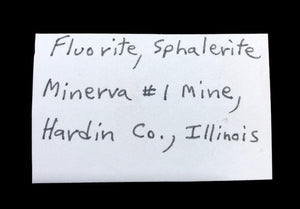 Fluorite, Sphalerite
Minerva #1 Mine,
Hardin Co., Illinois